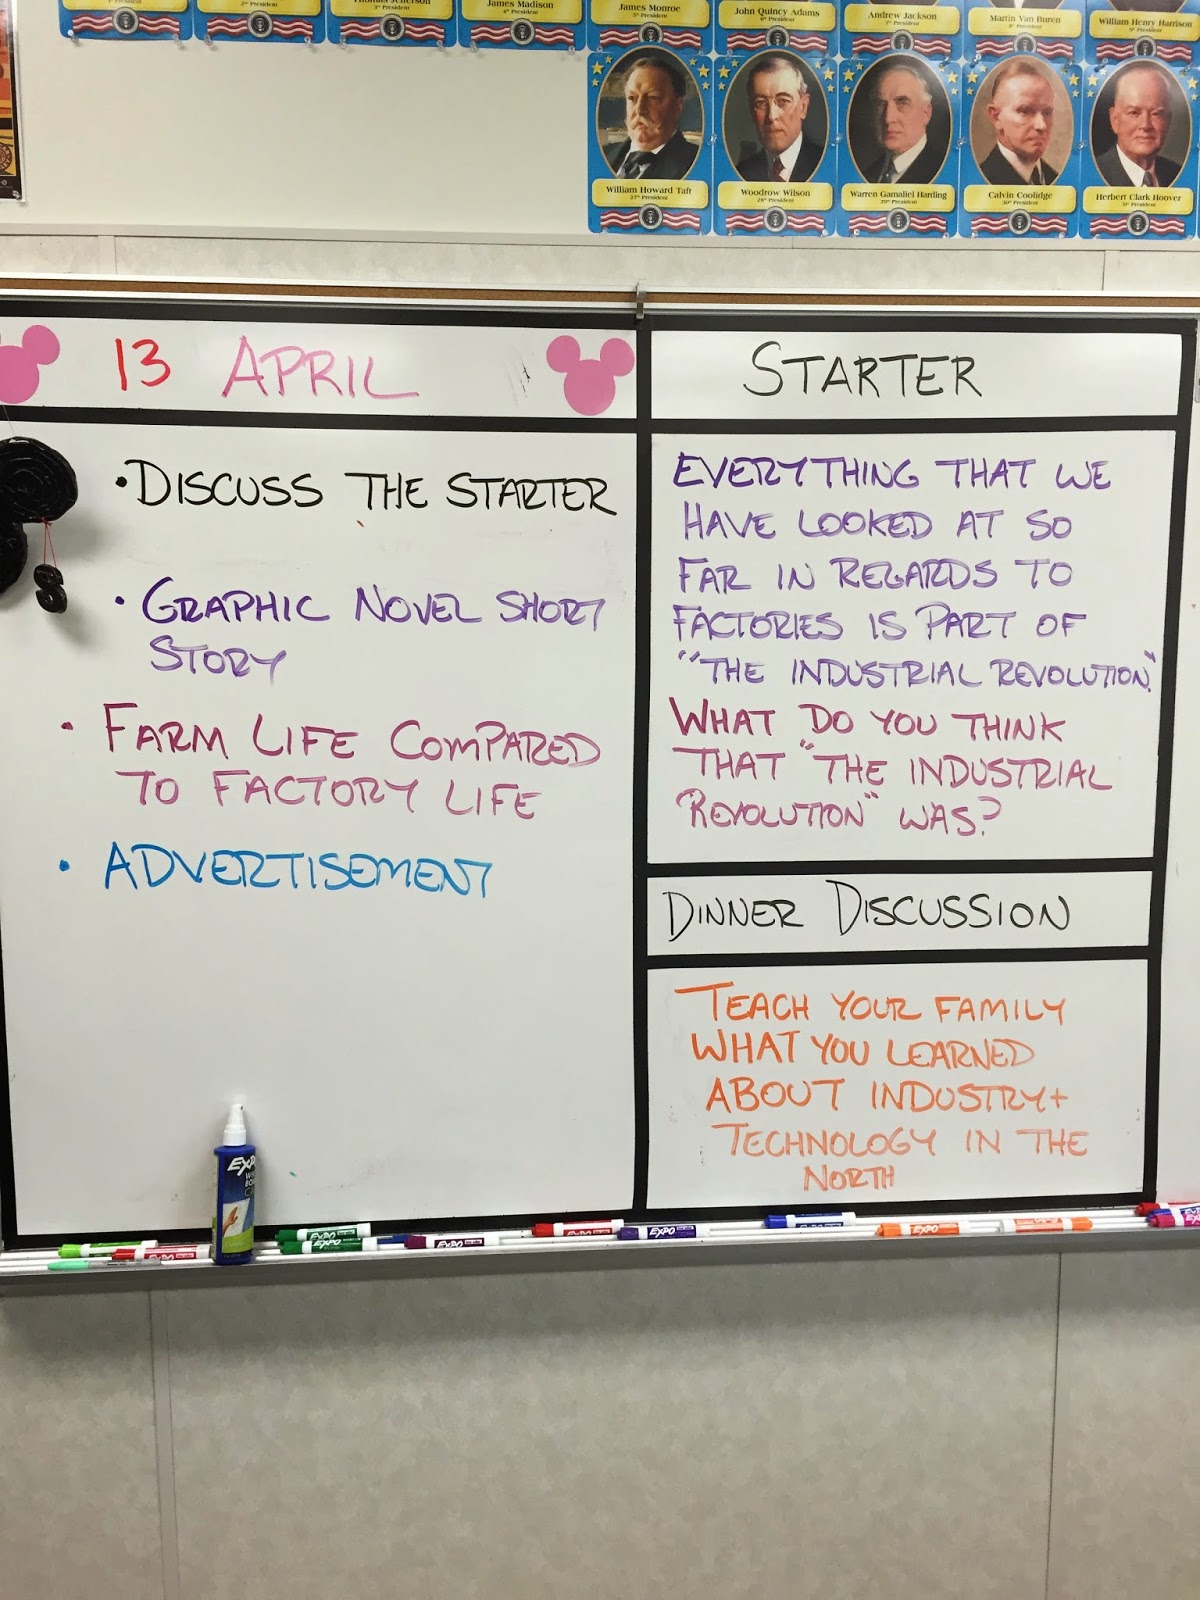 1st President
2nd President
Thomas Jefferson
3rd President
James Madison
4th President
James Monroe
5th President
John Quincy Adams
6th President
Andrew Jackson
7th President
Martin Van Buren
8th President
William Henry Harrison
9th President
William Howard Taft
27th President
Woodrow Wilson
28th President
Warren Gamaliel Harding
29th President
Calvin Coolidge
30th President
Herbert Clark Hoover
31st President
13 APRIL
• DISCUSS THE STARTER
• GRAPHIC NOVEL SHORT
STORY
• FARM LIFE COMPARED
TO FACTORY LIFE
• ADVERTISEMENT
STARTER
EVERYTHING THAT WE
HAVE LOOKED AT SO
FAR IN REGARDS TO
FACTORIES IS PART OF
"THE INDUSTRIAL REVOLUTION."
WHAT DO YOU THINK
THAT "THE INDUSTRIAL
REVOLUTION" WAS?
DINNER DISCUSSION
TEACH YOUR FAMILY
WHAT YOU LEARNED
ABOUT INDUSTRY +
TECHNOLOGY IN THE
NORTH
S
EXPO
EXPO
EXPO
EXPO
EXPO
EXPO
EXPO